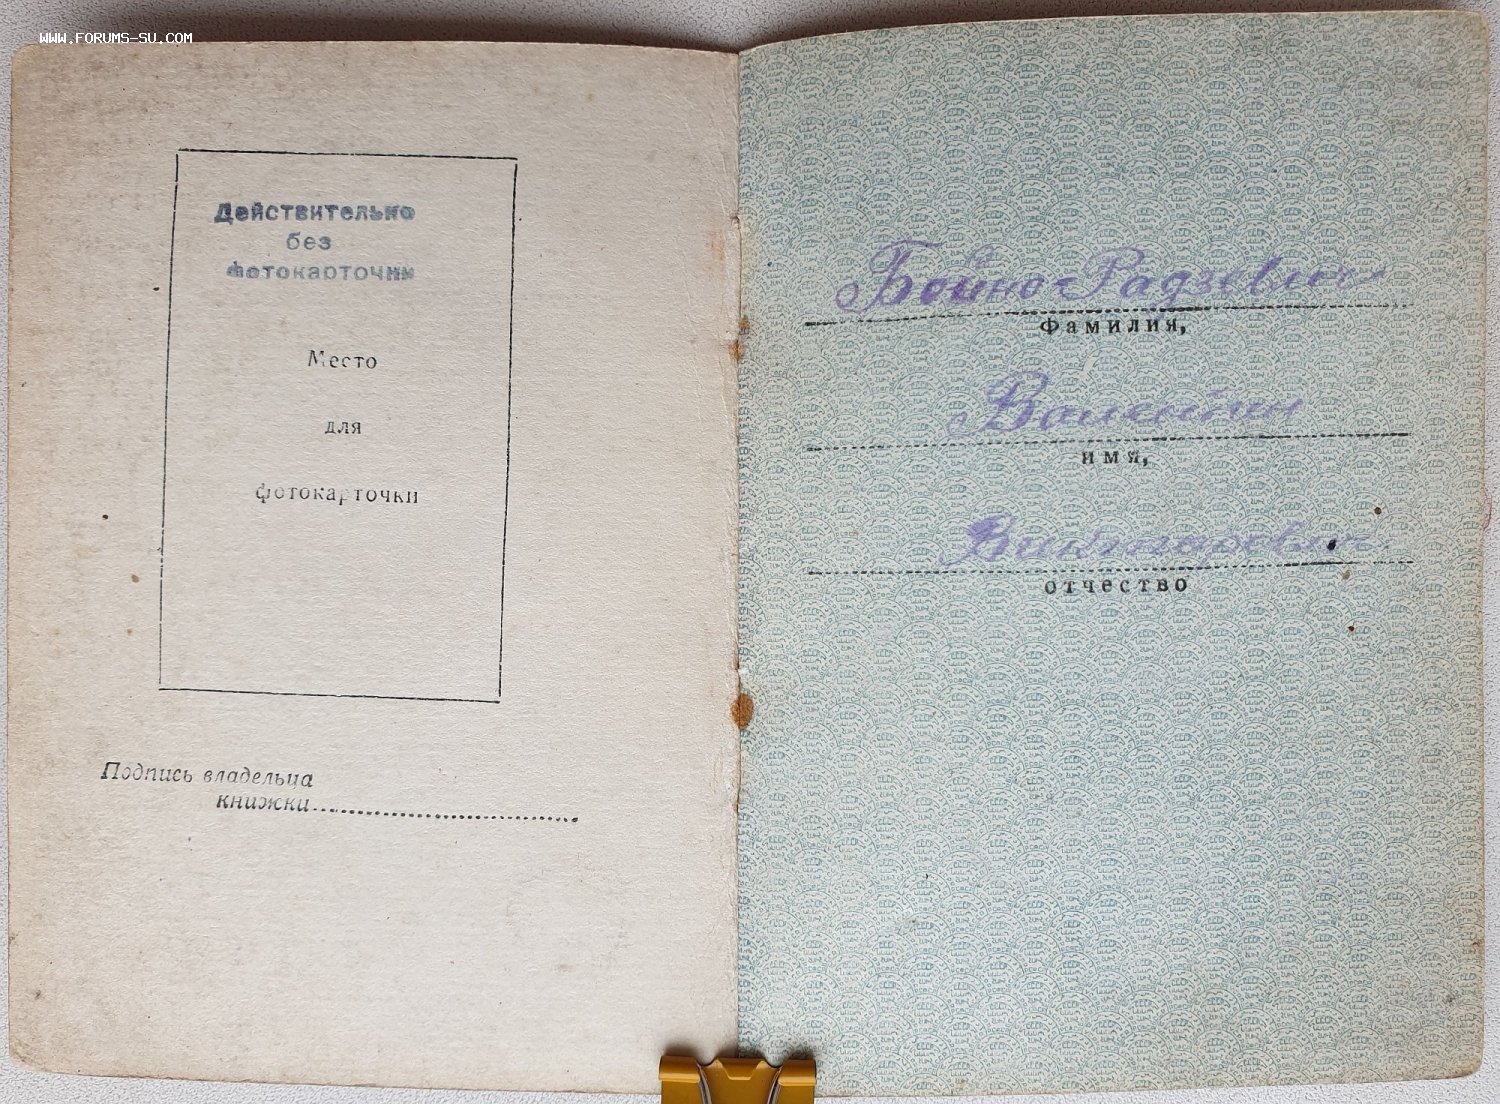 WWW.FORUMS-SU.COM
Действительно
без
фотокарточки
Место
для
фотокарточки
Подпись владельца
книжки
Бойно-Радзевич
Фамилия,
Валентин
имя,
Викторович
отчество